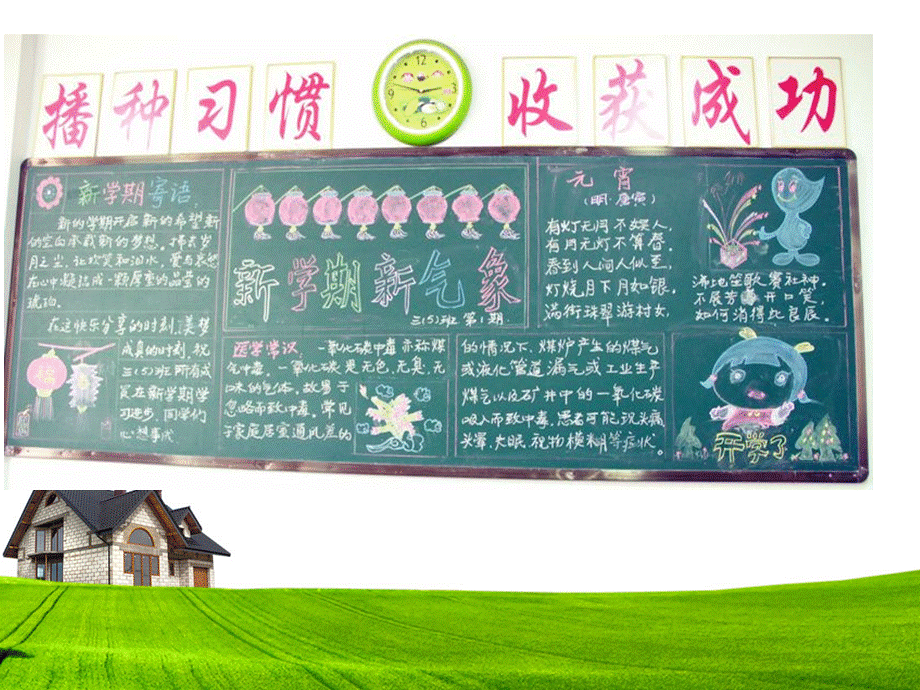 播种习惯
收获成功
新学期寄语
新的学期开启新的希望新
的空白承载新的梦想。拂去岁
月之尘,让欢笑和泪水,爱与哀愁
在心中凝结成一颗厚重的晶莹的
琥珀。
在这快乐分享的时刻,美梦
成真的时刻,祝
三(5)班所有成
员在新学期学
习进步,同学们
心想事成
新学期新气象
三(5)班 第1期
医学常识、一氧化碳中毒亦称煤
气中毒。一氧化碳是无色,无臭,无
味的气体,故易于
忽略而致中毒。常见
于家庭居室通风差的
的情况下,煤炉产生的煤气
或液化管道漏气或工业生产
煤气以及矿井中的一氧化碳
吸入而致中毒。患者可能现头痛
头晕,失眠 视物模糊等症状
元宵
(明·唐寅)
有灯无月不娱人,
有月无灯不算春。
春到人间人似玉,
灯烧月下月如银。
满街珠翠游村女,
沸地笙歌赛社神。
不展芳 开口笑
如何消得此良辰。
开学了